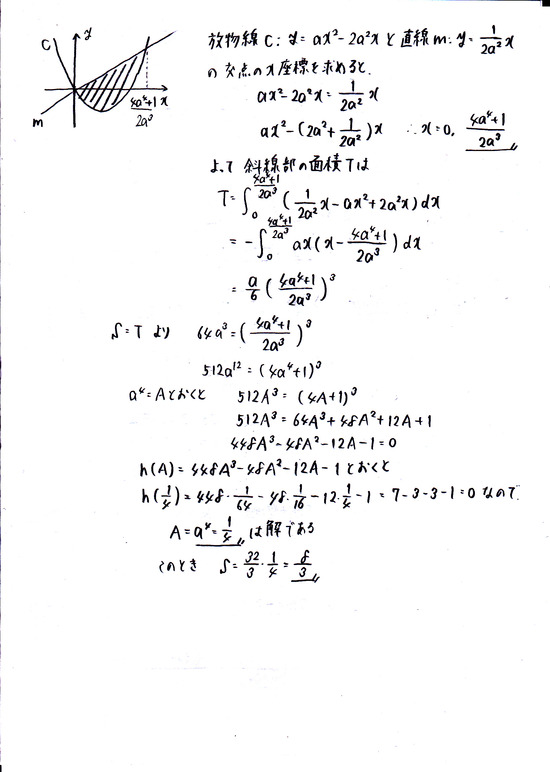 C
y
x
m
4a⁴+1/2a³
放物線C: y=ax²-2a²xと直線m: y=1/2a² x
の交点のx座標を求めると.
ax²-2a²x=1/2a² x
ax²-(2a²+1/2a²)x ∴x=0, 4a⁴+1/2a³
よって 斜線部の面積Tは
T=∫₀^(4a⁴+1/2a³) (1/2a² x-ax²+2a²x)dx
=-∫₀^(4a⁴+1/2a³) ax(x-4a⁴+1/2a³)dx
=a/6(4a⁴+1/2a³)³
S=Tより 64a³=(4a⁴+1/2a³)³
512a¹²=(4a⁴+1)³
a⁴=Aとおくと 512A³=(4A+1)³
512A³=64A³+48A²+12A+1
448A³-48A²-12A-1=0
h(A)=448A³-48A²-12A-1とおくと
h(1/4)=448・1/64-48・1/16-12・1/4-1=7-3-3-1=0なので.
A=a⁴=1/4は解である
このとき S=32/3・1/4=8/3